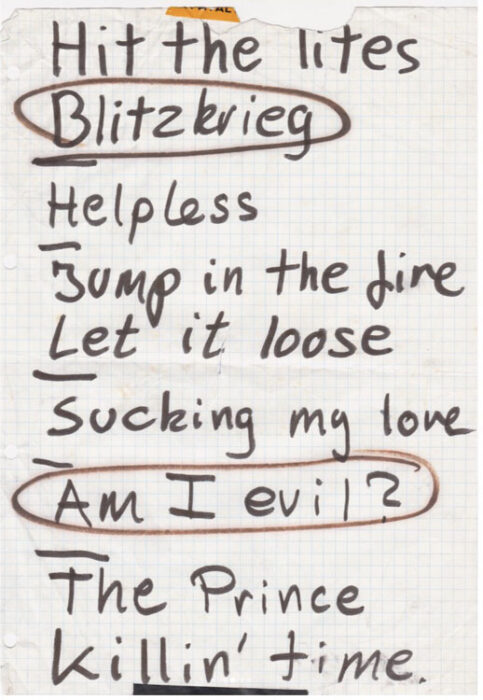 Hit the lites
Blitzkrieg
Helpless
Jump in the fire
Let it loose
Sucking my love
Am I evil?
The Prince
Killin' time.